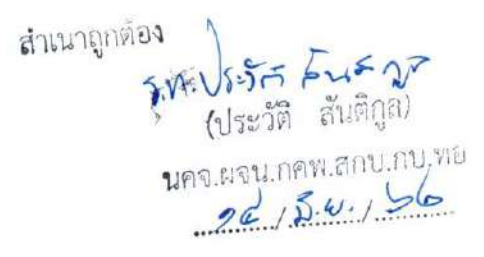 สำเนาถูกต้อง
ร.ท. ประวัติ สันติกูล
(ประวัติ สันติกูล)
นคจ.ผจน.กคพ.สกบ.กบ.ทย
๑๔ / มิ.ย. / ๖๒